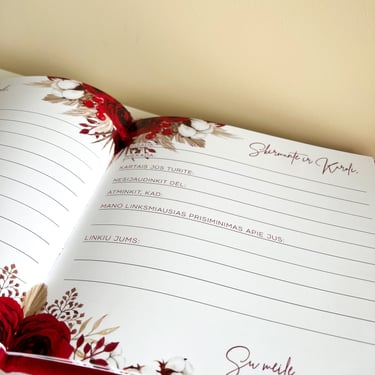 Skirmante ir Karoli,
KARTAIS JŪS TURITE:
NESIJAUDINKIT DĖL:
ATMINKIT, KAD:
MANO LINKSMIAUSIAS PRISIMINIMAS APIE JUS:
LINKIU JUMS:
Su meile